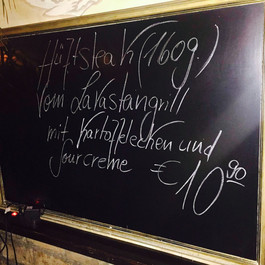 Hüftsteak (160g.)
Vom Lavasteingrill
mit Kartoffelecken und
Sourcreme €10,90